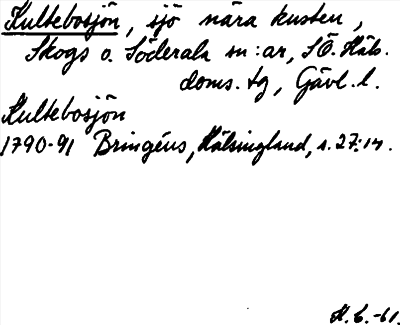 Kultebosjön, sjö nära kusten,
Skogs o. Söderala sn:ar, SÖ. Häls.
doms. tg, Gävl. l.
Kultebosjön
1790-91 Bringéus, Hälsingland, s. 27: